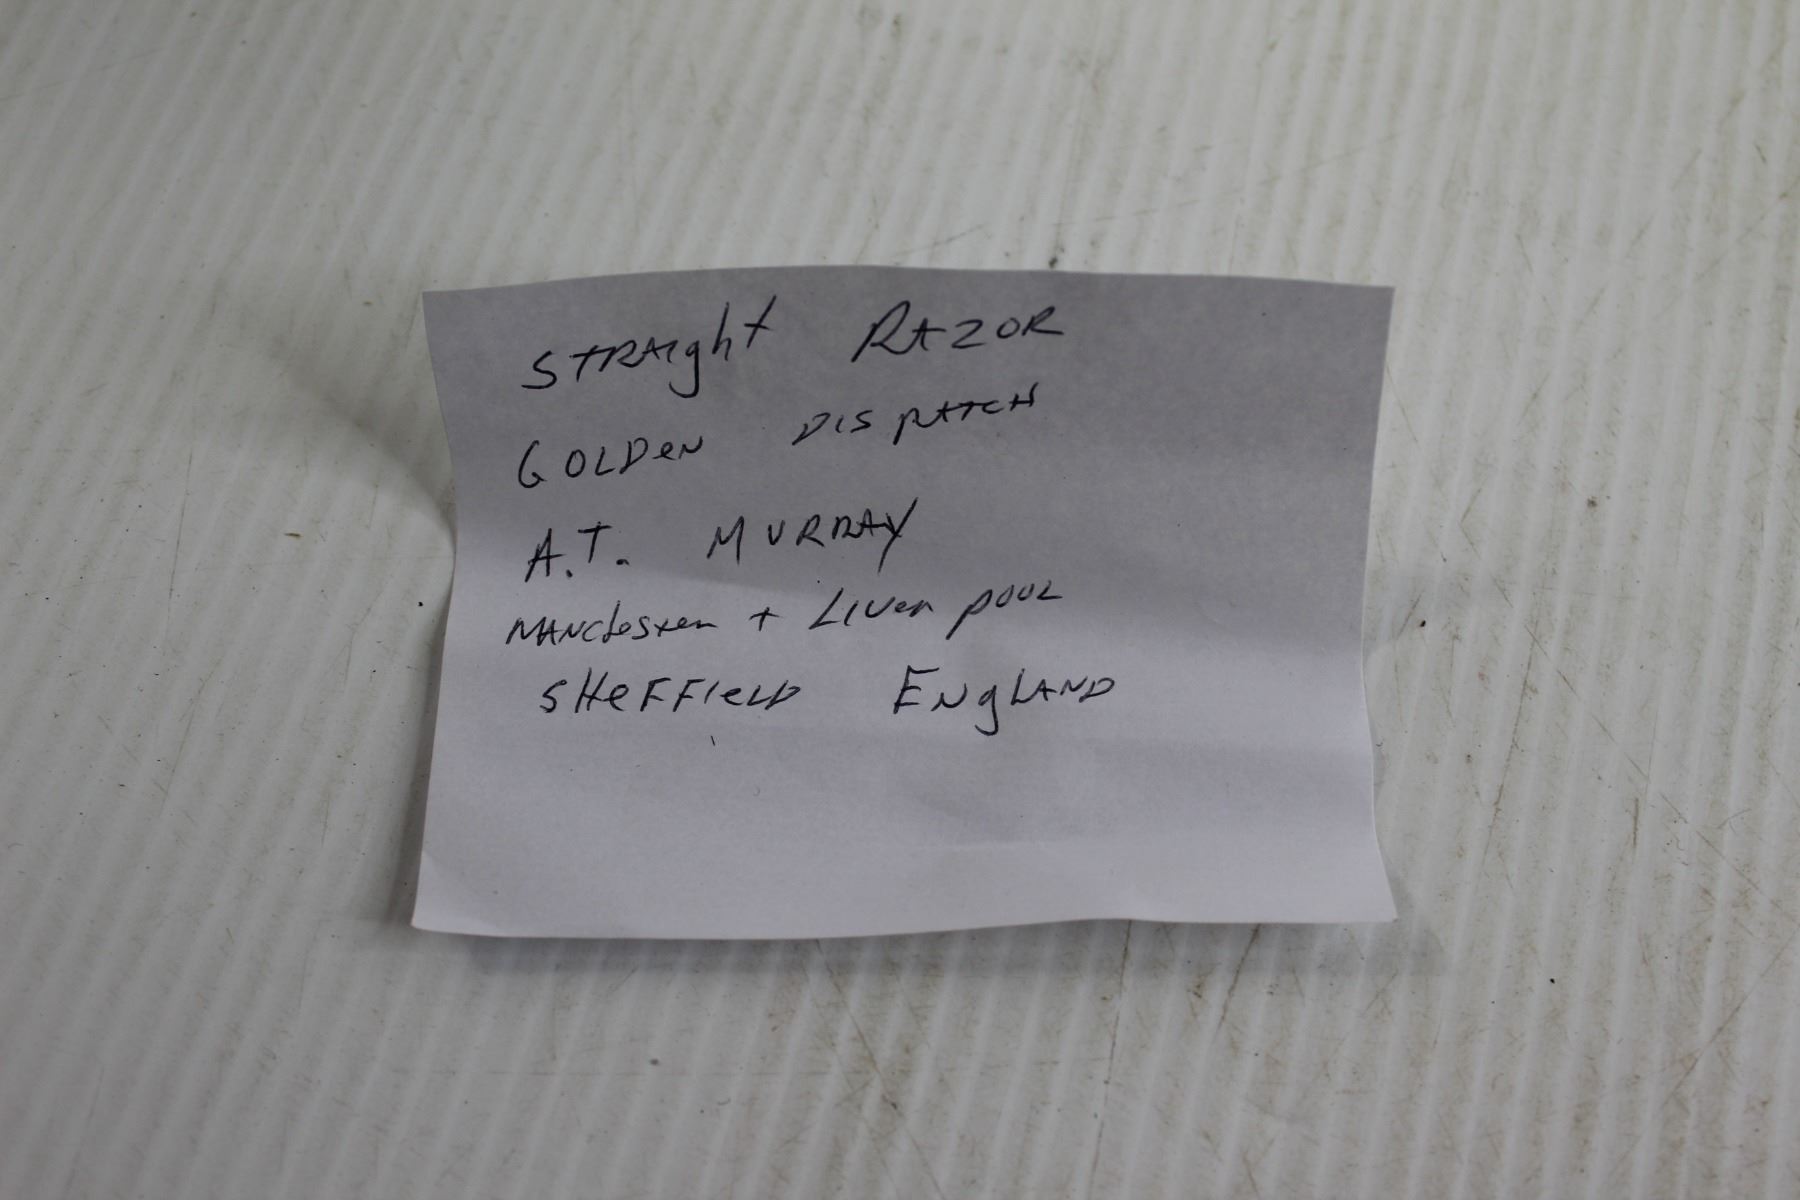 STRAIghT RAZOR
GOLDeN DISPATCH
A.T. MURRAY
MANChesTer + LIVer pOOL
SHeFFIeLD ENgLAND